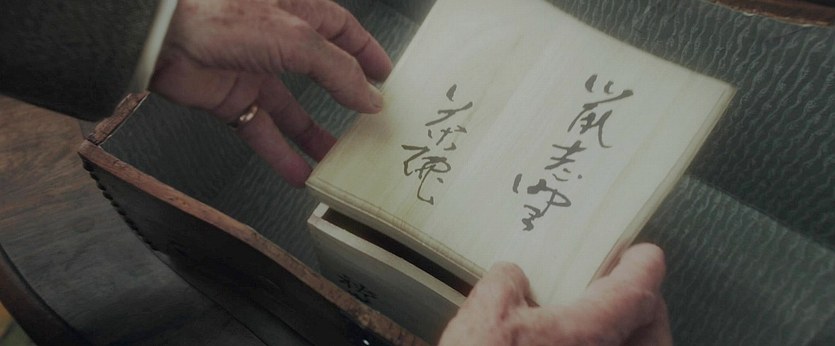 嵐志野
茶碗